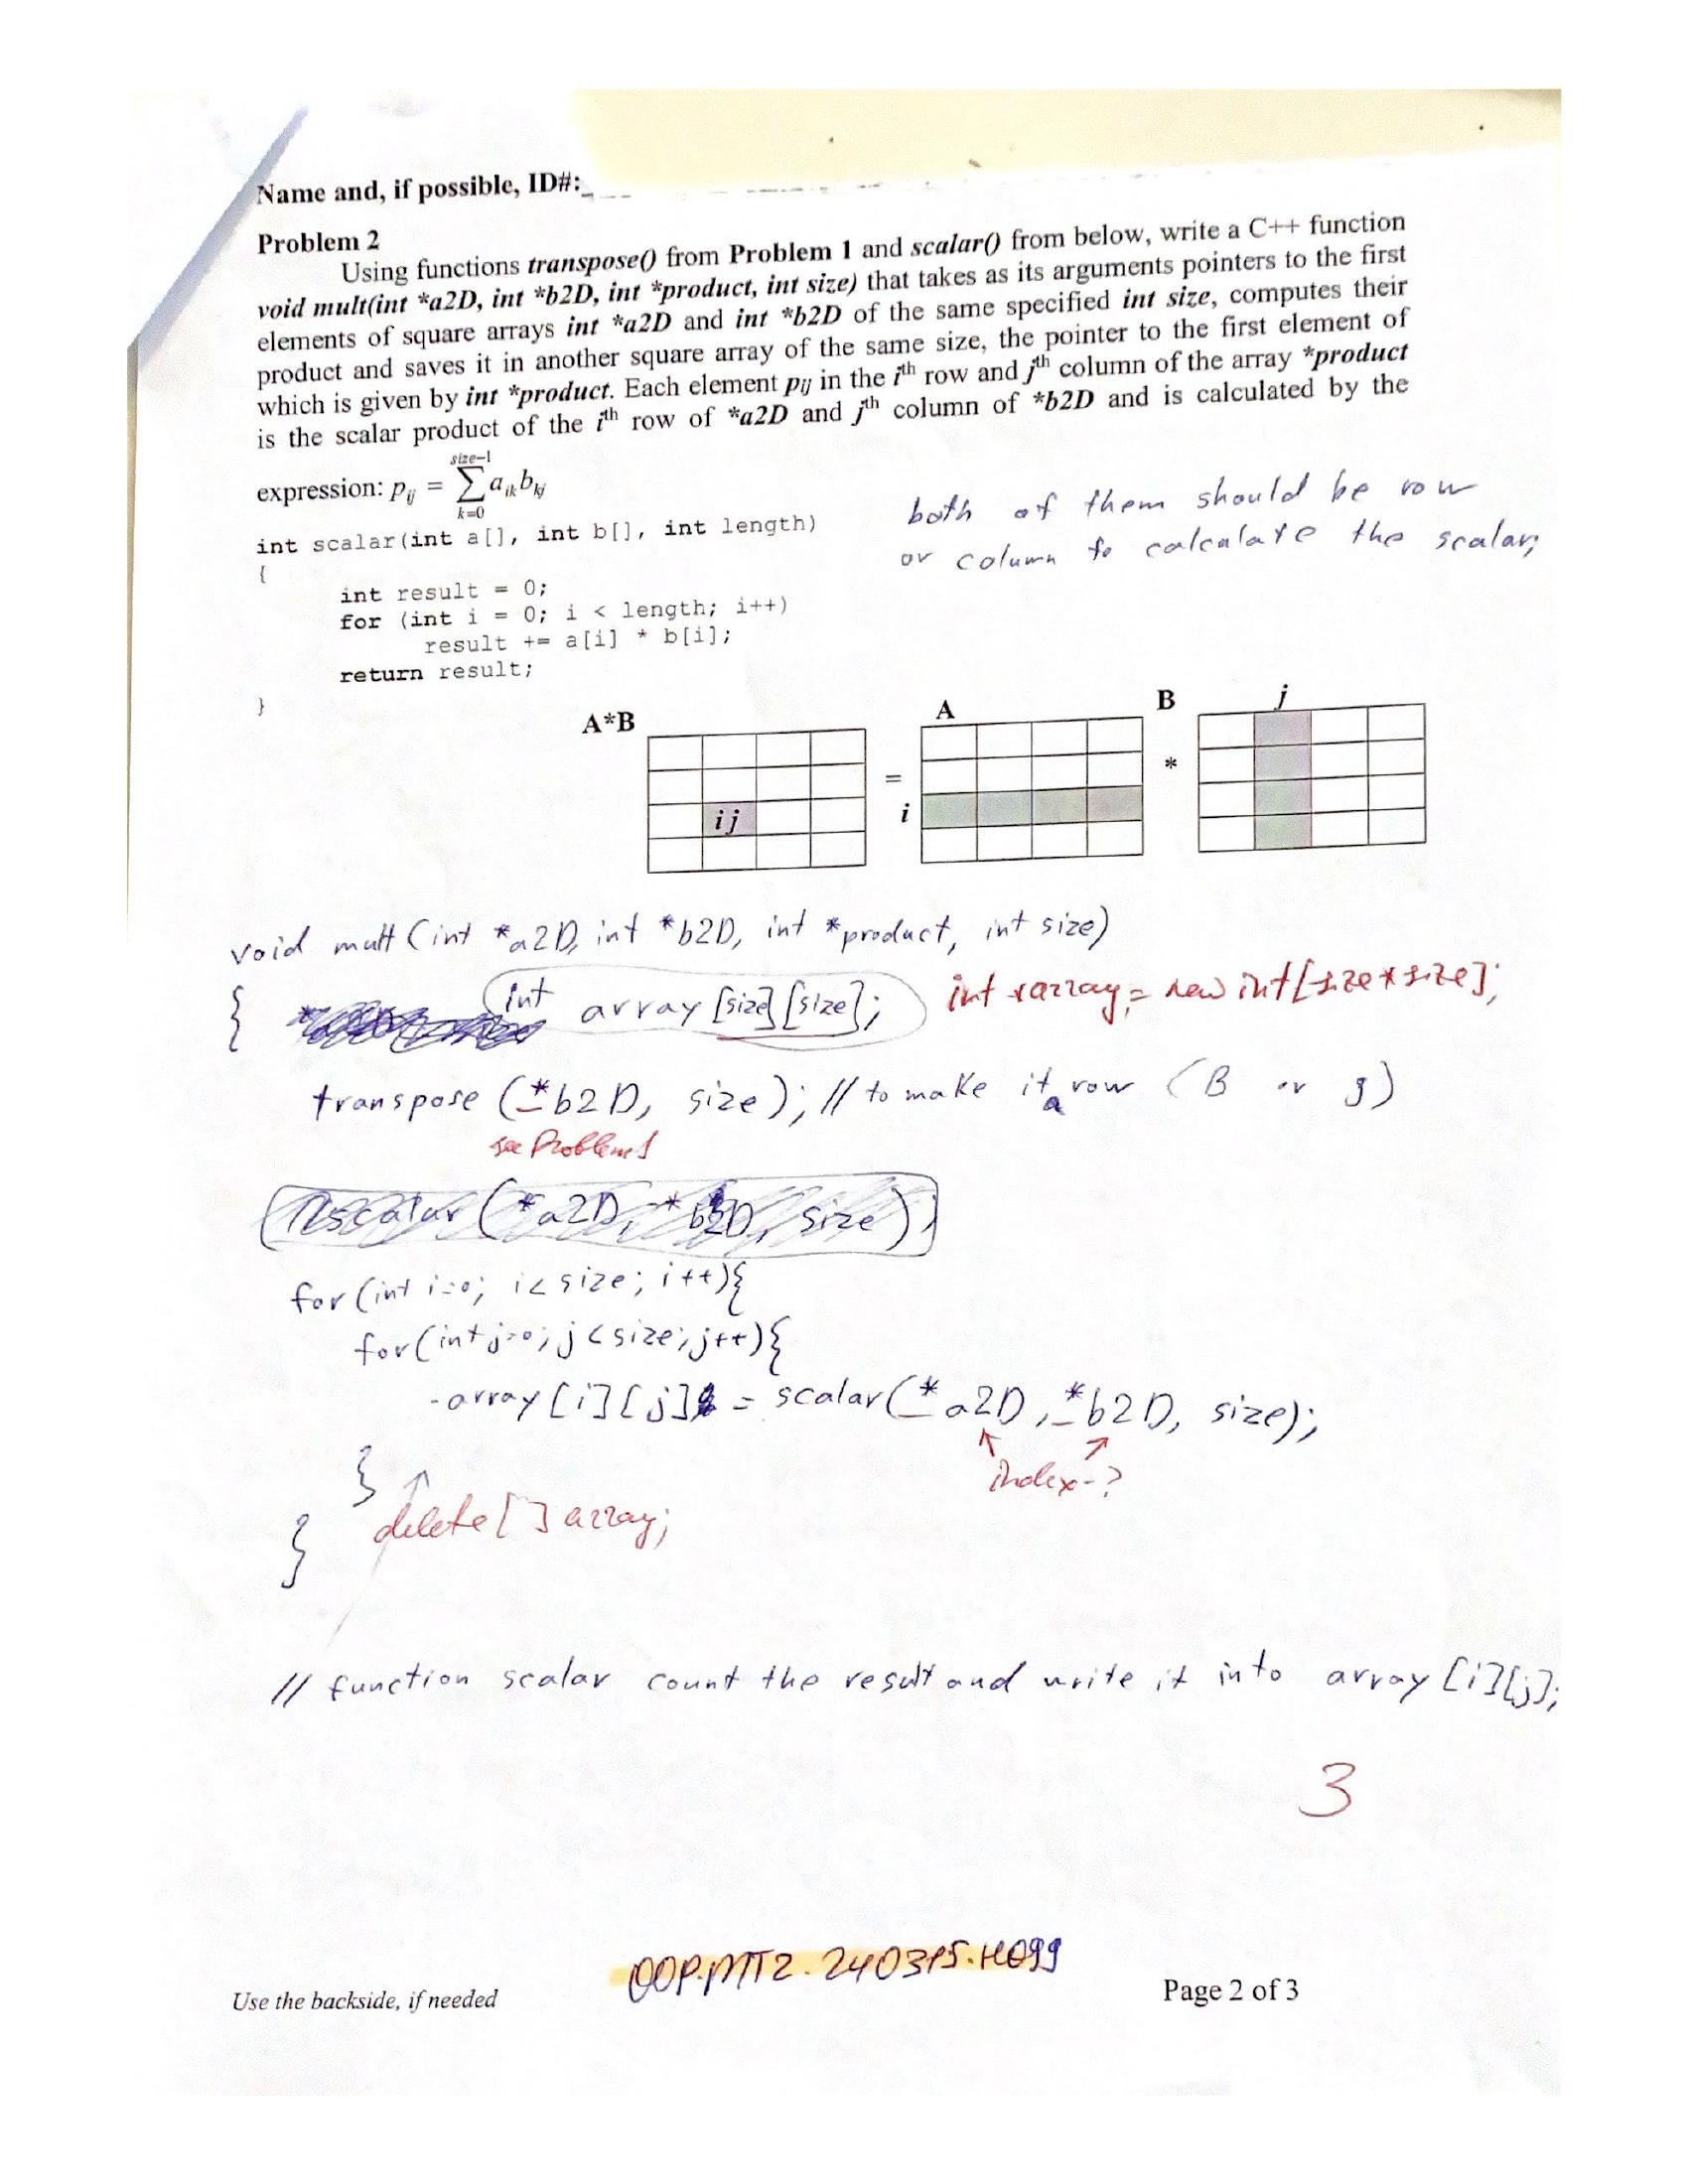 Name and, if possible, ID#:
Problem 2
Using functions transpose() from Problem 1 and scalar() from below, write a C++ function
void mult(int *a2D, int *b2D, int *product, int size) that takes as its arguments pointers to the first
elements of square arrays int *a2D and int *b2D of the same specified int size, computes their
product and saves it in another square array of the same size, the pointer to the first element of
which is given by int *product. Each element pij in the ith row and jth column of the array *product
is the scalar product of the ith row of *a2D and jth column of *b2D and is calculated by the
expression: pij = size-1 ∑ k=0 aik bkj
both of them should be row
or column to calculate the scalar;
int scalar(int a[], int b[], int length)
{
int result = 0;
for (int i = 0; i < length; i++)
result += a[i] * b[i];
return result;
}
A*B = A * B
j
i
ij
void mult (int *a2D, int *b2D, int *product, int size)
{ int array [size][size]; int *array = new int[size*size];
transpose (*b2D, size); // to make it a row (B or j)
see Problem 1
scalar (*a2D, *b2D, size);
for (int i=0; i<size; i++){
for (int j=0; j<size; j++){
array [i][j] = scalar(*a2D, *b2D, size);
index-?
}
delete[] array;
}
// function scalar count the result and write it into array [i][j];
3
OOP.MT2.240315.H099
Use the backside, if needed
Page 2 of 3